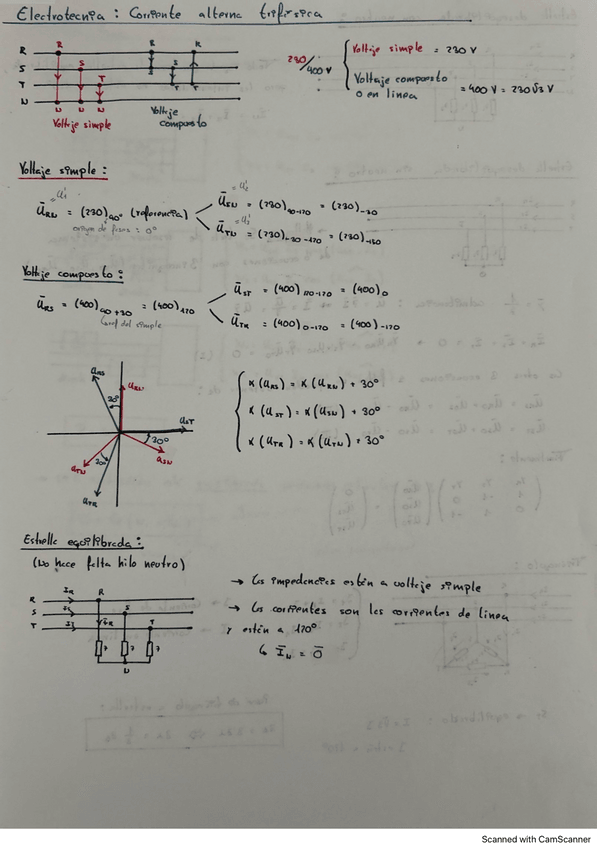 Electrotecnia: Corriente alterna trifásica
R R R R
S S S S
T T T T
N N N N
Voltaje simple
Voltaje compuesto
230/400 V
Voltaje simple = 230 V
Voltaje compuesto o en línea = 400 V = 230√3 V
Voltaje simple:
= U₁
Ū_RN = (230)_90° (referencia)
origen de fases: 0°
= U₂
Ū_SN = (230)_90-120 = (230)_-30
= U₃
Ū_TN = (230)_-30-120 = (230)_-150
Voltaje compuesto:
Ū_RS = (400)_90+30 = (400)_120
Ū_ST = (400)_120-120 = (400)_0
Ū_TR = (400)_0-120 = (400)_-120
U_RS
U_RN
30°
U_ST
30°
U_SN
U_TN
30°
U_TR
∢(U_RS) = ∢(U_RN) + 30°
∢(U_ST) = ∢(U_SN) + 30°
∢(U_TR) = ∢(U_TN) + 30°
Estrella equilibrada:
(No hace falta hilo neutro)
R I_R R
S I_S S
T I_T I_R T
Z Z Z
N
→ Las impedancias están a voltaje simple
→ Las corrientes son las corrientes de línea
y están a 120°
↳ Ī_N = 0̄
Scanned with CamScanner